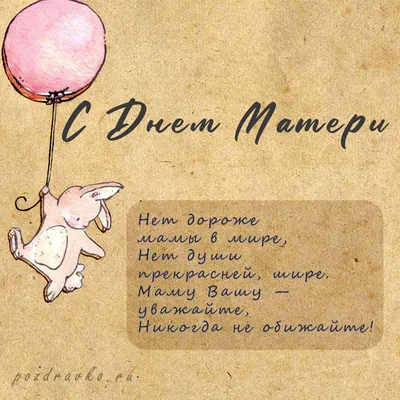 С Днем Матери
Нет дороже
мамы в мире,
Нет души
прекрасней, шире.
Маму Вашу —
уважайте,
Никогда не обижайте!
pozdravko.ru